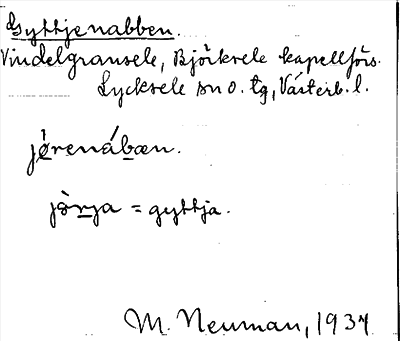 Gyttjenabben.
Vindelgransele, Björksele kapellförs.
Lycksele sn o. tg, Västerb. l.
jø̀renábæn.
jø̀rja = gyttja.
M. Neuman, 1937